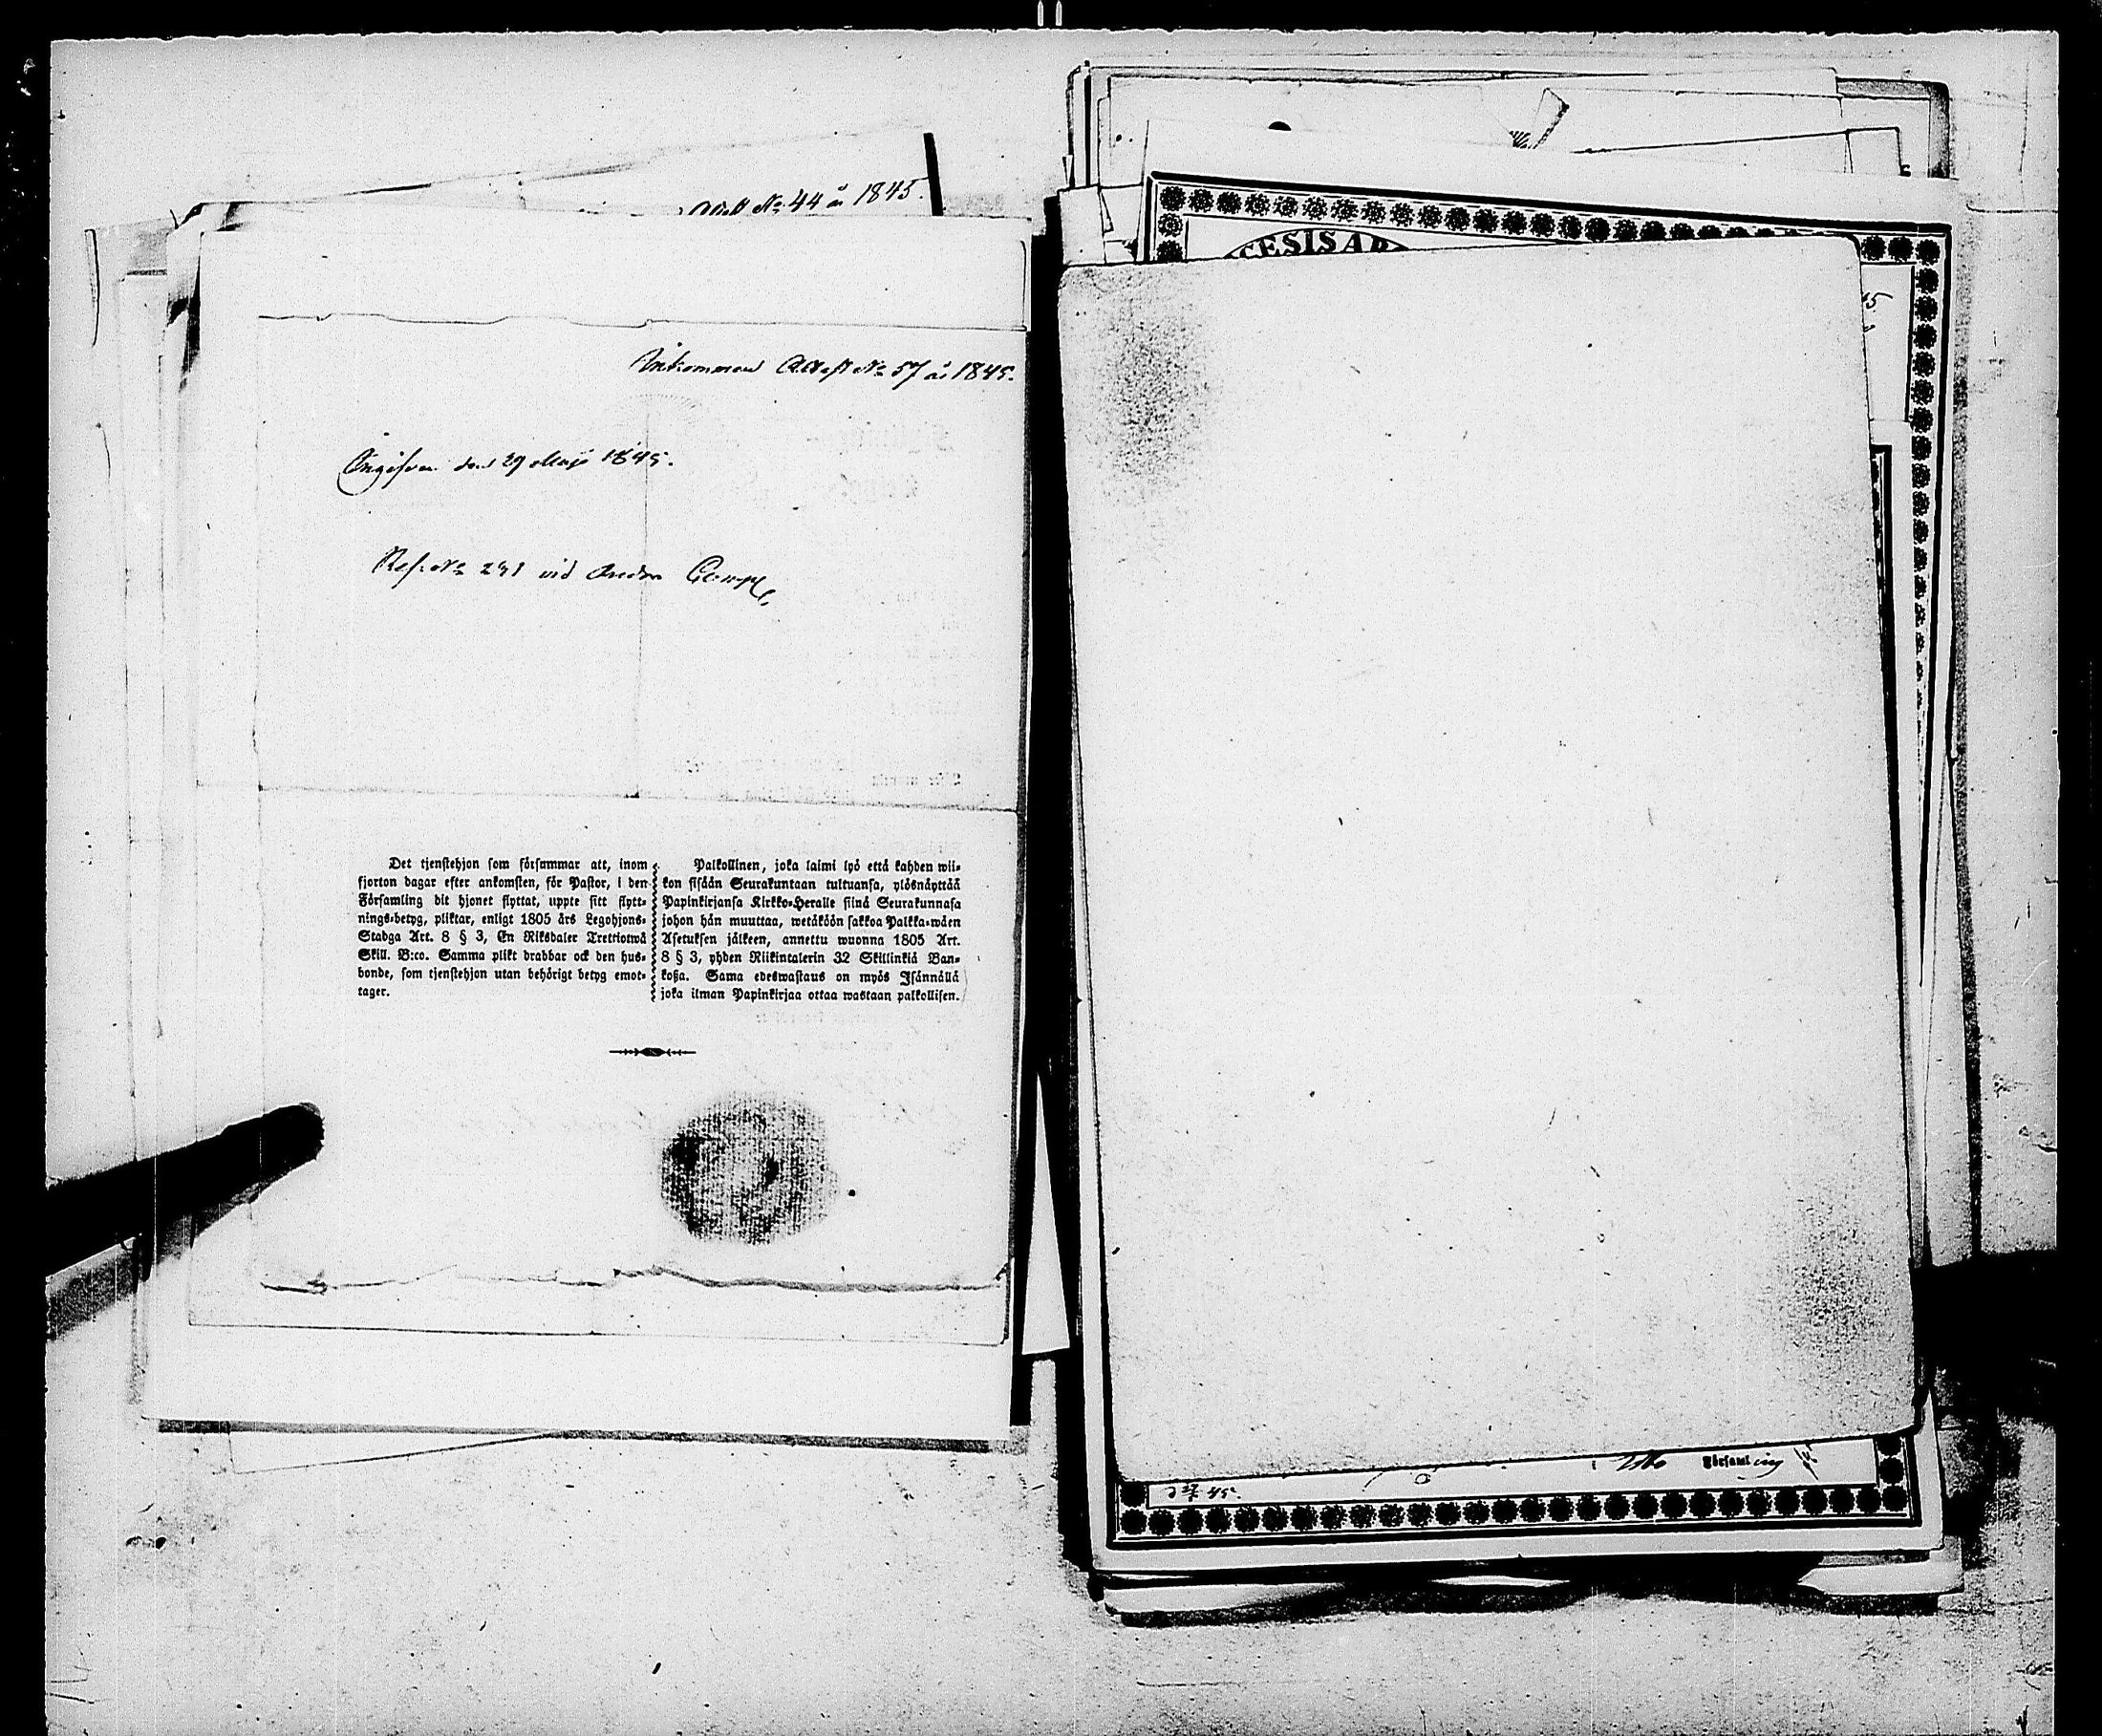 Attest No 44 år 1845.
Inkommen Attest No 57 år 1845.
Ingifven den 29 Maji 1845.
No 241 vid Andra
Det tjenstehjon som försummar att, inom
fjorton dagar efter ankomsten, för Pastor, i den
Församling dit hjonet flyttat, uppte sitt flytt-
nings-betyg, pliktar, enligt 1805 års Legohjons-
Stadga Art. 8 § 3, En Riksdaler Trettiotwå
Skill. B:co. Samma plikt drabbar ock den hus-
bonde, som tjenstehjon utan behörigt betyg emot-
tager.
Palkollinen, joka laimi lyö että kahden wii-
kon sisään Seurakuntaan tultuansa, ylösnäyttää
Papinkirjansa Kirkko-Heralle siinä Seurakunnasa
johon hän muuttaa, wetäköön sakkoa Palkka-wäen
Asetuksen jälkeen, annettu wuonna 1805 Art.
8 § 3, yhden Riikintalerin 32 Skillinkiä Ban-
kosa. Sama edeswastaus on myös Isännällä
joka ilman Papinkirjaa ottaa wastaan palkollisen.
CESIS AB
45
Församling
45.